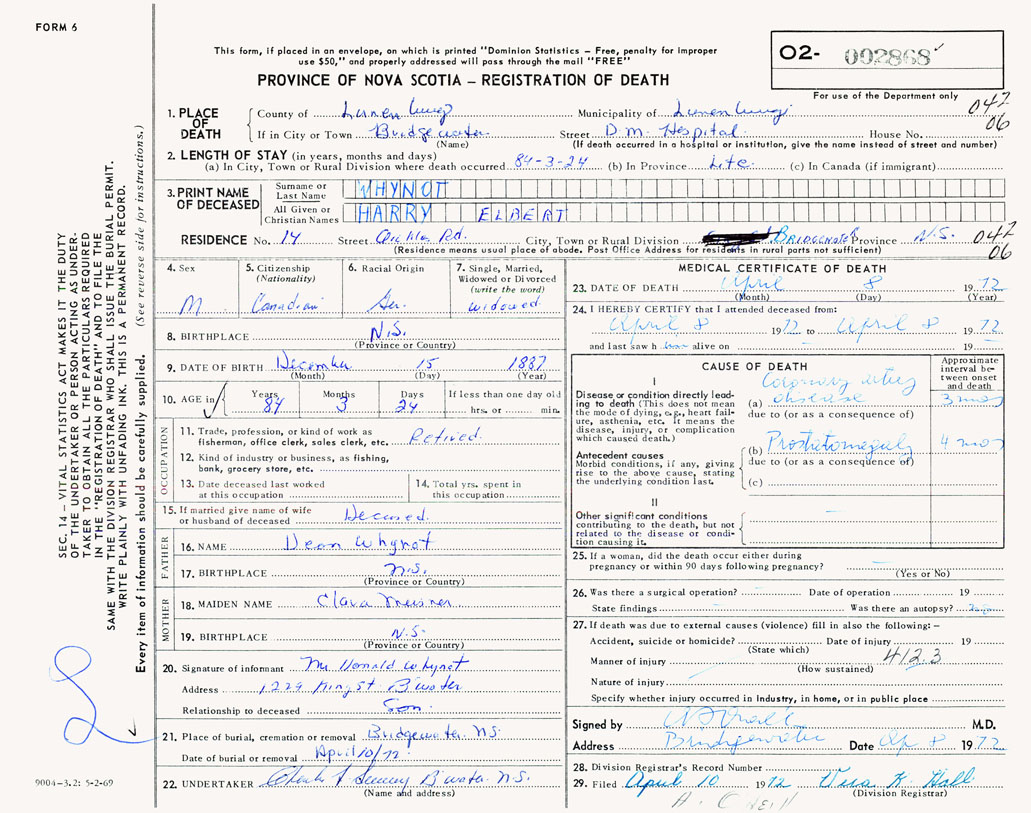 FORM 6
This form, if placed in an envelope, on which is printed "Dominion Statistics – Free, penalty for improper
use $50," and properly addressed will pass through the mail "FREE"
PROVINCE OF NOVA SCOTIA – REGISTRATION OF DEATH
O2- 002868
For use of the Department only
047
06
1. PLACE OF DEATH
County of Lunenburg Municipality of Lunenburg
If in City or Town Bridgewater Street D.M. Hospital House No.
(Name) (If death occurred in a hospital or institution, give the name instead of street and number)
2. LENGTH OF STAY (in years, months and days)
(a) In City, Town or Rural Division where death occurred 84-3-24 (b) In Province Life (c) In Canada (if immigrant)
3. PRINT NAME OF DECEASED
Surname or Last Name WHYNOT
All Given or Christian Names HARRY ELBERT
RESIDENCE No. 14 Street Rd. City, Town or Rural Division BRIDGEWATER Province N.S.
047
06
(Residence means usual place of abode. Post Office Address for residents in rural parts not sufficient)
4. Sex
M
5. Citizenship
(Nationality)
Canadian
6. Racial Origin
Ger.
7. Single, Married,
Widowed or Divorced
(write the word)
widowed
8. BIRTHPLACE N.S.
(Province or Country)
9. DATE OF BIRTH December 15 1887
(Month) (Day) (Year)
10. AGE in
Years Months Days If less than one day old
84 3 24 hrs. or min.
OCCUPATION
11. Trade, profession, or kind of work as
fisherman, office clerk, sales clerk, etc. Retired
12. Kind of industry or business, as fishing,
bank, grocery store, etc.
13. Date deceased last worked
at this occupation
14. Total yrs. spent in
this occupation
15. If married give name of wife
or husband of deceased Deceased
FATHER
16. NAME Dean Whynot
17. BIRTHPLACE N.S.
(Province or Country)
MOTHER
18. MAIDEN NAME Clara Meisner
19. BIRTHPLACE N.S.
(Province or Country)
20. Signature of informant Mr Donald Whynot
Address 1229 King St B'water
Relationship to deceased Son
21. Place of burial, cremation or removal Bridgewater N.S.
Date of burial or removal April 10/72
22. UNDERTAKER B'water N.S.
(Name and address)
MEDICAL CERTIFICATE OF DEATH
23. DATE OF DEATH April 8 1972
(Month) (Day) (Year)
24. I HEREBY CERTIFY that I attended deceased from:
April 8 1972 to April 8 1972
and last saw h alive on 19
CAUSE OF DEATH
Approximate interval between onset and death
I
Disease or condition directly leading to death (This does not mean the mode of dying, e.g., heart failure, asthenia, etc. it means the disease, injury, or complication which caused death.)
(a) Coronary artery disease 3 mos
due to (or as a consequence of)
Antecedent causes
Morbid conditions, if any, giving rise to the above cause, stating the underlying condition last.
(b) Prostatomegaly 4 mos
due to (or as a consequence of)
(c)
II
Other significant conditions
contributing to the death, but not
related to the disease or condition causing it.
25. If a woman, did the death occur either during
pregnancy or within 90 days following pregnancy?
(Yes or No)
26. Was there a surgical operation? Date of operation 19
State findings Was there an autopsy?
27. If death was due to external causes (violence) fill in also the following: –
Accident, suicide or homicide? Date of injury 19
(State which)
412.3
Manner of injury
(How sustained)
Nature of injury
Specify whether injury occurred in industry, in home, or in public place
Signed by M.D.
Address Bridgewater Date Ap 8 1972
28. Division Registrar's Record Number
29. Filed April 10 1972 Vera K. Hall
(Division Registrar)
SEC. 14 – VITAL STATISTICS ACT MAKES IT THE DUTY
OF THE UNDERTAKER OR PERSON ACTING AS UNDER-
TAKER TO OBTAIN ALL THE PARTICULARS REQUIRED
IN THE "REGISTRATION OF DEATH" AND TO FILE THE
SAME WITH THE DIVISION REGISTRAR WHO SHALL ISSUE THE BURIAL PERMIT.
WRITE PLAINLY WITH UNFADING INK. THIS IS A PERMANENT RECORD.
Every item of information should be carefully supplied. (See reverse side for instructions.)
9004-3.2: 5-2-69